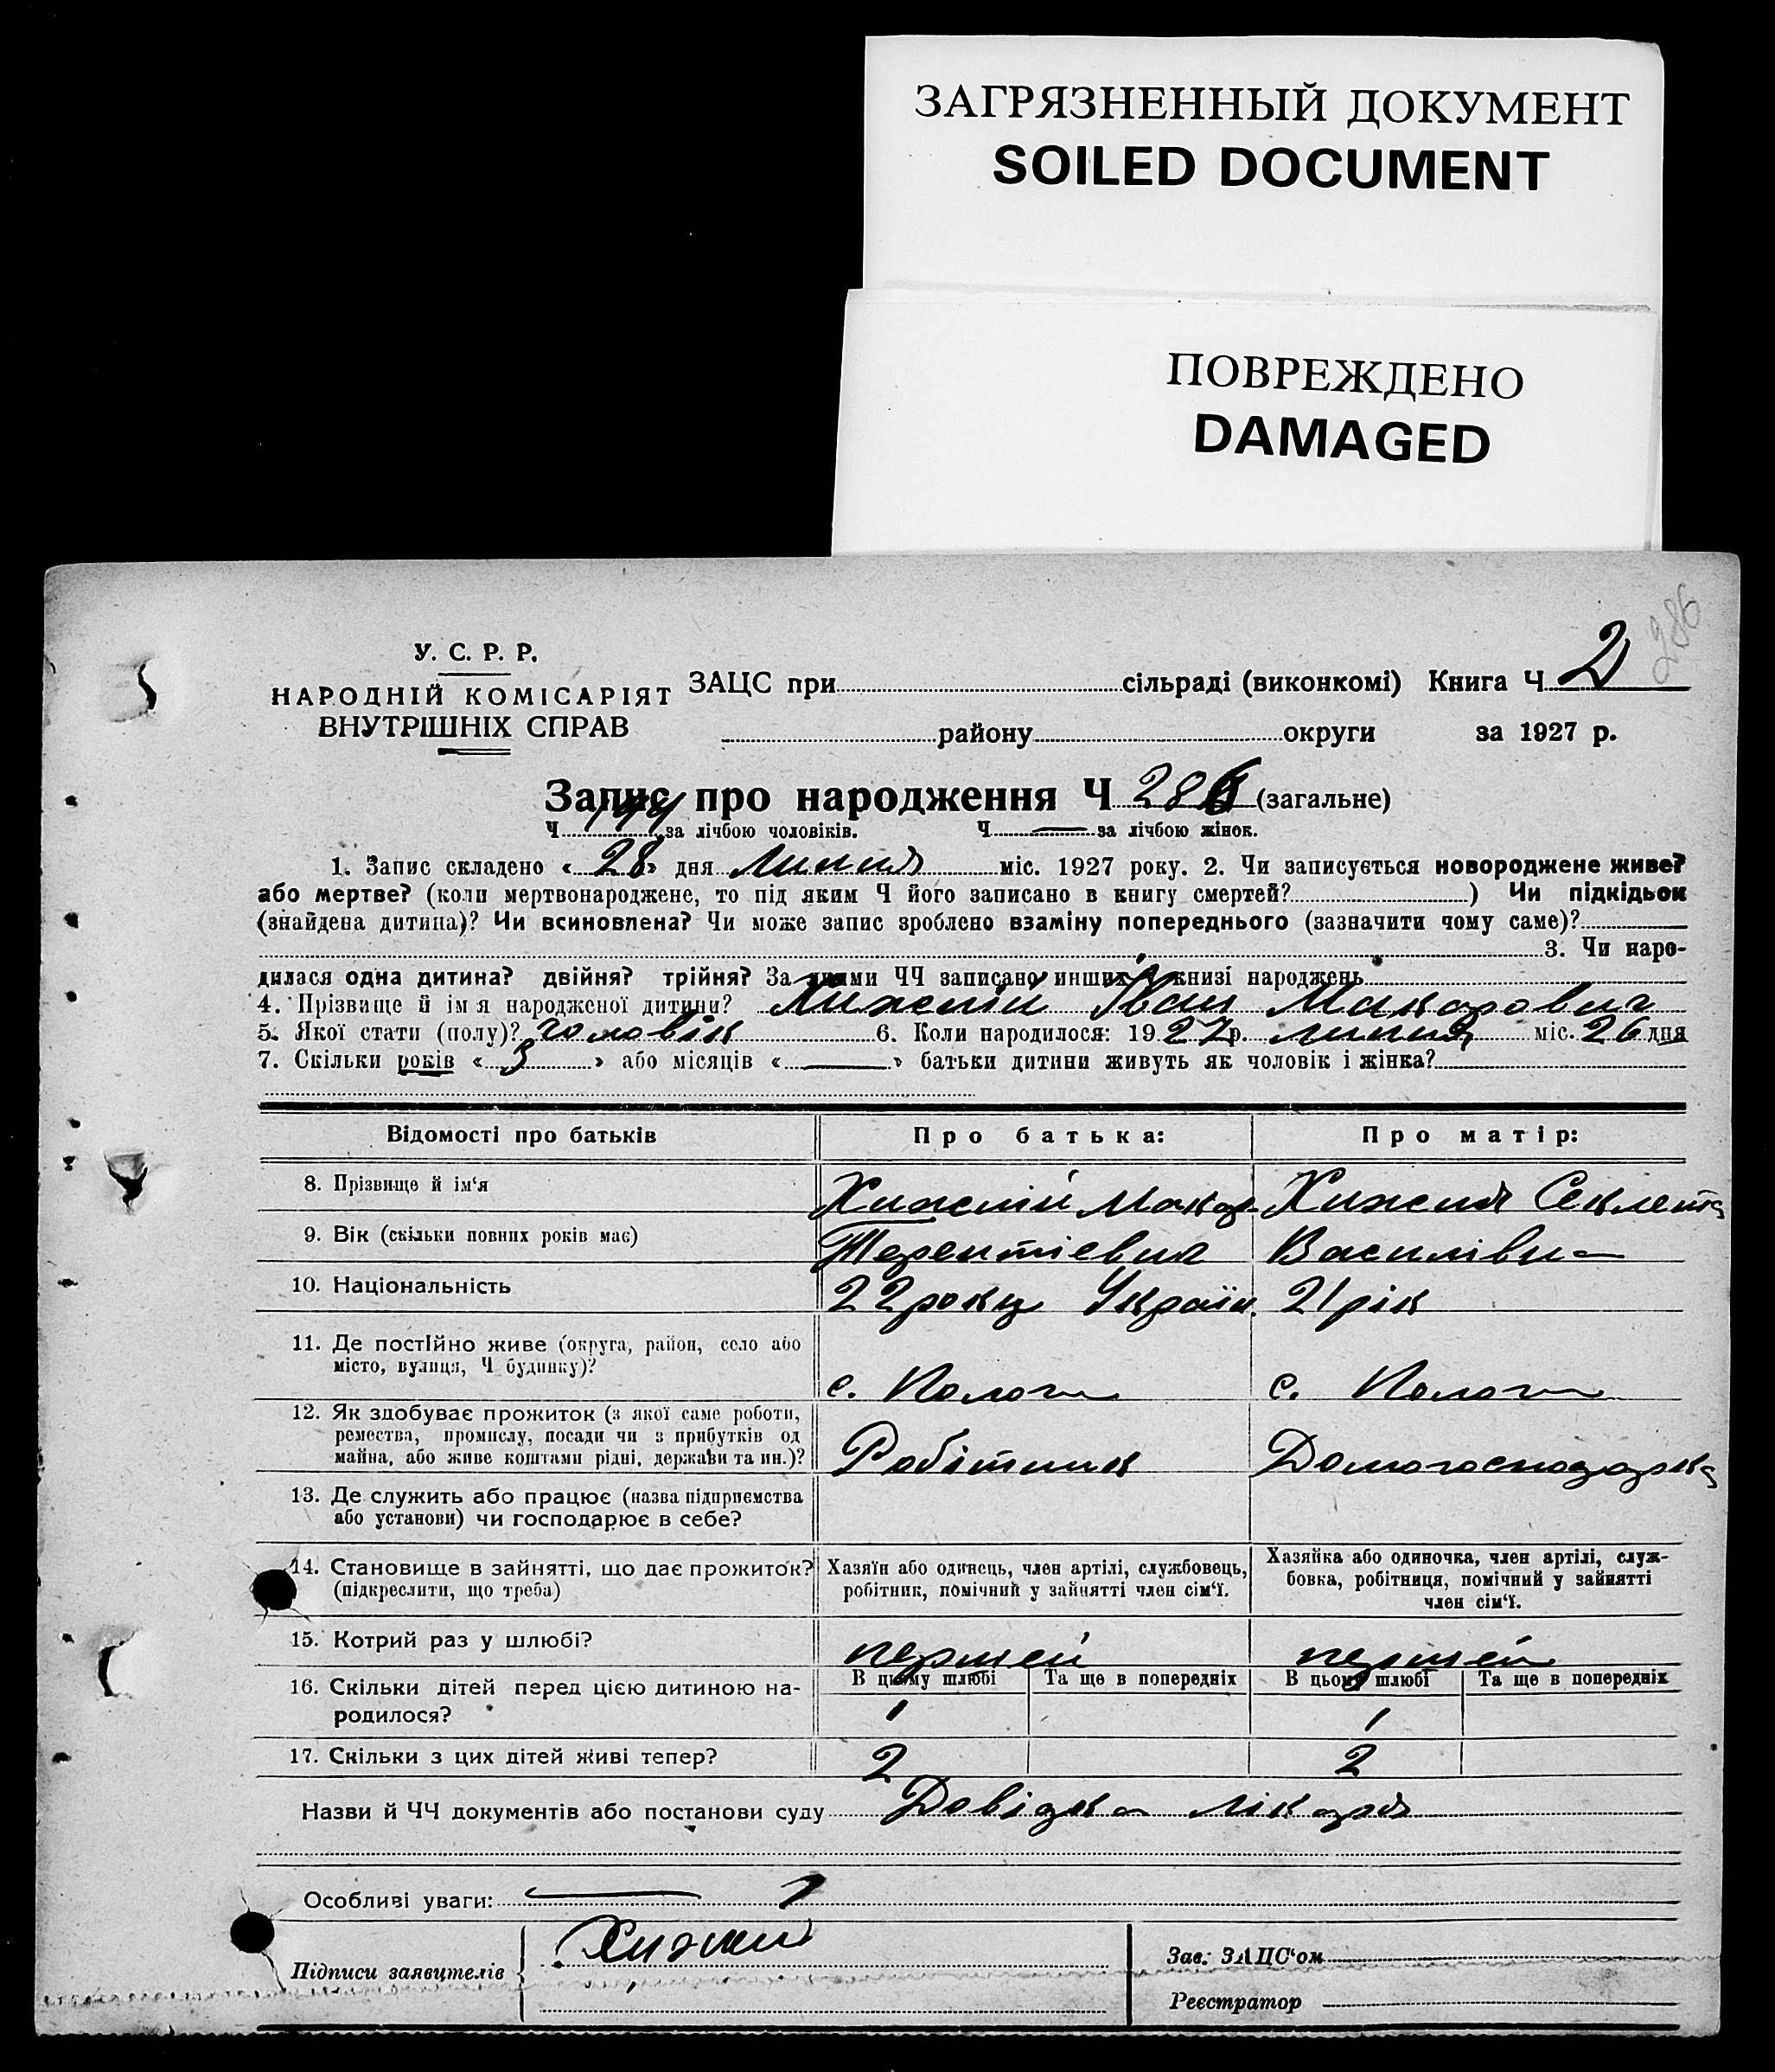 ЗАГРЯЗНЕННЫЙ ДОКУМЕНТ
SOILED DOCUMENT
ПОВРЕЖДЕНО
DAMAGED
286
У. С. Р. Р.
НАРОДНІЙ КОМІСАРІЯТ
ВНУТРІШНІХ СПРАВ
ЗАЦС при сільраді (виконкомі) Книга Ч 2
району округи за 1927 р.
Запис про народження Ч 286 (загальне)
Ч 144 за лічбою чоловіків. Ч — за лічбою жінок.
1. Запис складено « 28 » дня Липня міс. 1927 року. 2. Чи записується новороджене живе?
або мертве? (коли мертвонароджене, то під яким Ч його записано в книгу смертей? ) Чи підкідьок
(знайдена дитина)? Чи всиновлена? Чи може запис зроблено взаміну попереднього (зазначити чому саме)?
3. Чи наро-
дилася одна дитина? двійня? трійня? За якими ЧЧ записано инших у книзі народжень
4. Прізвище й ім'я народженої дитини? Хижній Іван Макарович
5. Якої стати (полу)? чоловік 6. Коли народилося: 1927 р. липня міс. 26 дня
7. Скільки років « 3 » або місяців « — » батьки дитини живуть як чоловік і жінка?
Відомості про батьків Про батька: Про матір:
8. Прізвище й ім'я Макар Секлета
9. Вік (скільки повних років має) Терентієвич Василівна
10. Національність 22 роки Україн. 21 рік
11. Де постійно живе (округа, район, село або
місто, вулиця, Ч будинку)? с. Пологи с. Пологи
12. Як здобуває прожиток (з якої саме роботи,
ремества, промислу, посади чи з прибутків од
майна, або живе коштами рідні, держави та ин.)? Робітник Домогосподарка
13. Де служить або працює (назва підприємства
або установи) чи господарює в себе?
14. Становище в зайнятті, що дає прожиток?
(підкреслити, що треба)
Хазяїн або одинець, член артілі, службовець,
робітник, помічний у зайнятті член сім'ї.
Хазяйка або одиночка, член артілі, служ-
бовка, робітниця, помічний у зайнятті
член сім'ї.
15. Котрий раз у шлюбі? першей першей
16. Скільки дітей перед цією дитиною на-
родилося?
В цьому шлюбі Та ще в попередніх В цьому шлюбі Та ще в попередніх
1 1
17. Скільки з цих дітей живі тепер? 2 2
Назви й ЧЧ документів або постанови суду Довідка лікаря
Особливі уваги: —
Підписи заявителів
Зав. ЗАЦС'ом
Реєстратор